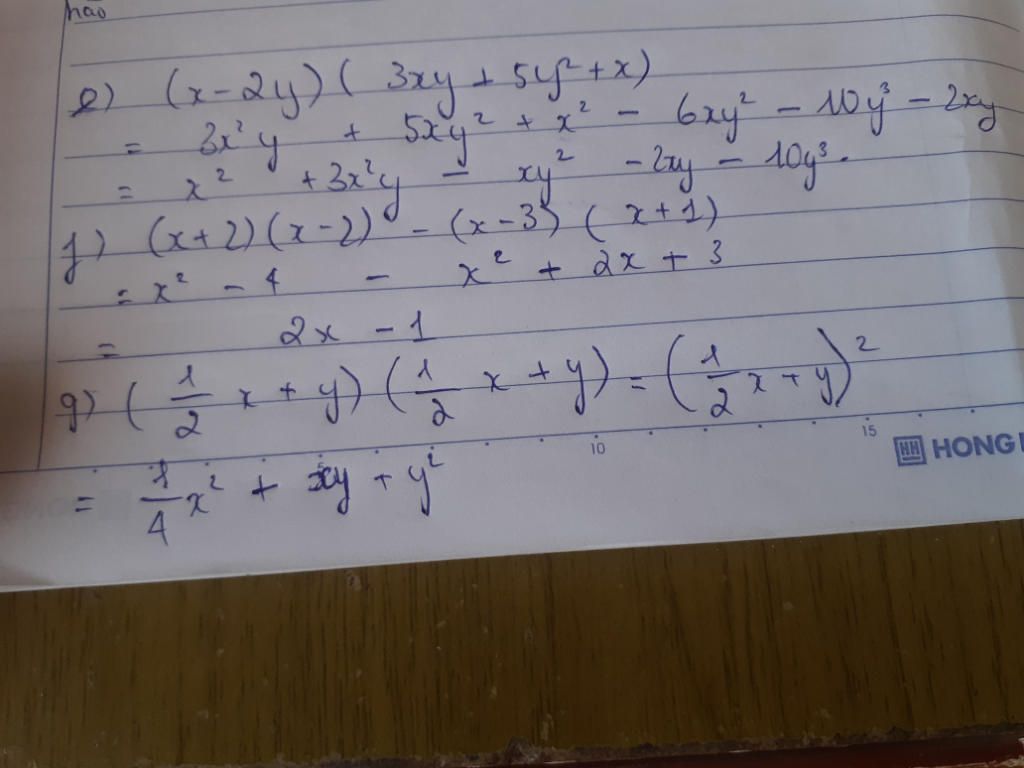 hão
e) (x-2y)( 3xy + 5y² + x)
= 3x²y + 5xy² + x² - 6xy² - 10y³ - 2xy
= x² + 3x²y - xy² - 2xy - 10y³.
f) (x+2)(x-2) - (x-3)( x+1)
= x² - 4 - x² + 2x + 3
= 2x - 1
g) (1/2 x + y)(1/2 x + y) = (1/2 x + y)²
10 15
HH HONG
= 1/4 x² + xy + y²